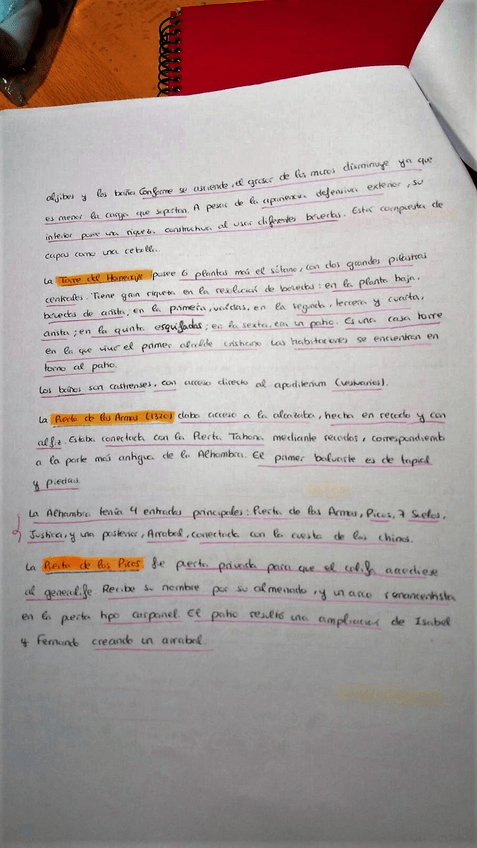 aljibes y los baños. Conforme se asciende, el grosor de los muros disminuye ya que
es menor la carga que soportan. A pesar de la apariencia defensiva exterior, su
interior posee una riqueza constructiva al usar diferentes bóvedas. Está compuesta de
capas como una cebolla.
La Torre del Homenaje posee 6 plantas más el sótano, con dos grandes pilastras
centrales. Tiene gran riqueza en la resolución de bóvedas: en la planta baja,
bóvedas de arista; en la primera, vaídas, en la segunda, tercera y cuarta,
arista; en la quinta esquifadas; en la sexta, era un patio. Es una casa torre
en la que vive el primer alcalde cristiano. Las habitaciones se encuentran en
torno al patio.
Los baños son castrenses, con acceso directo al apoditerium (vestuarios).
La Puerta de las Armas (1320) daba acceso a la alcazaba, hecha en recodo y con
alfiz. Estaba conectada con la Puerta Tahona mediante recodos, correspondiendo
a la parte más antigua de la Alhambra. El primer baluarte es de tapial
y piedras.
La Alhambra tenía 4 entradas principales: Puerta de las Armas, Picos, 7 Suelos,
Justicia, y una posterior, Arrabal, conectada con la cuesta de los chinos.
La Puerta de los Picos fue puerta privada para que el califa accediese
al generalife. Recibe su nombre por su almenado, y un arco renacentista
en la puerta tipo carpanel. El patio resultó una ampliación de Isabel
y Fernando creando un arrabal.